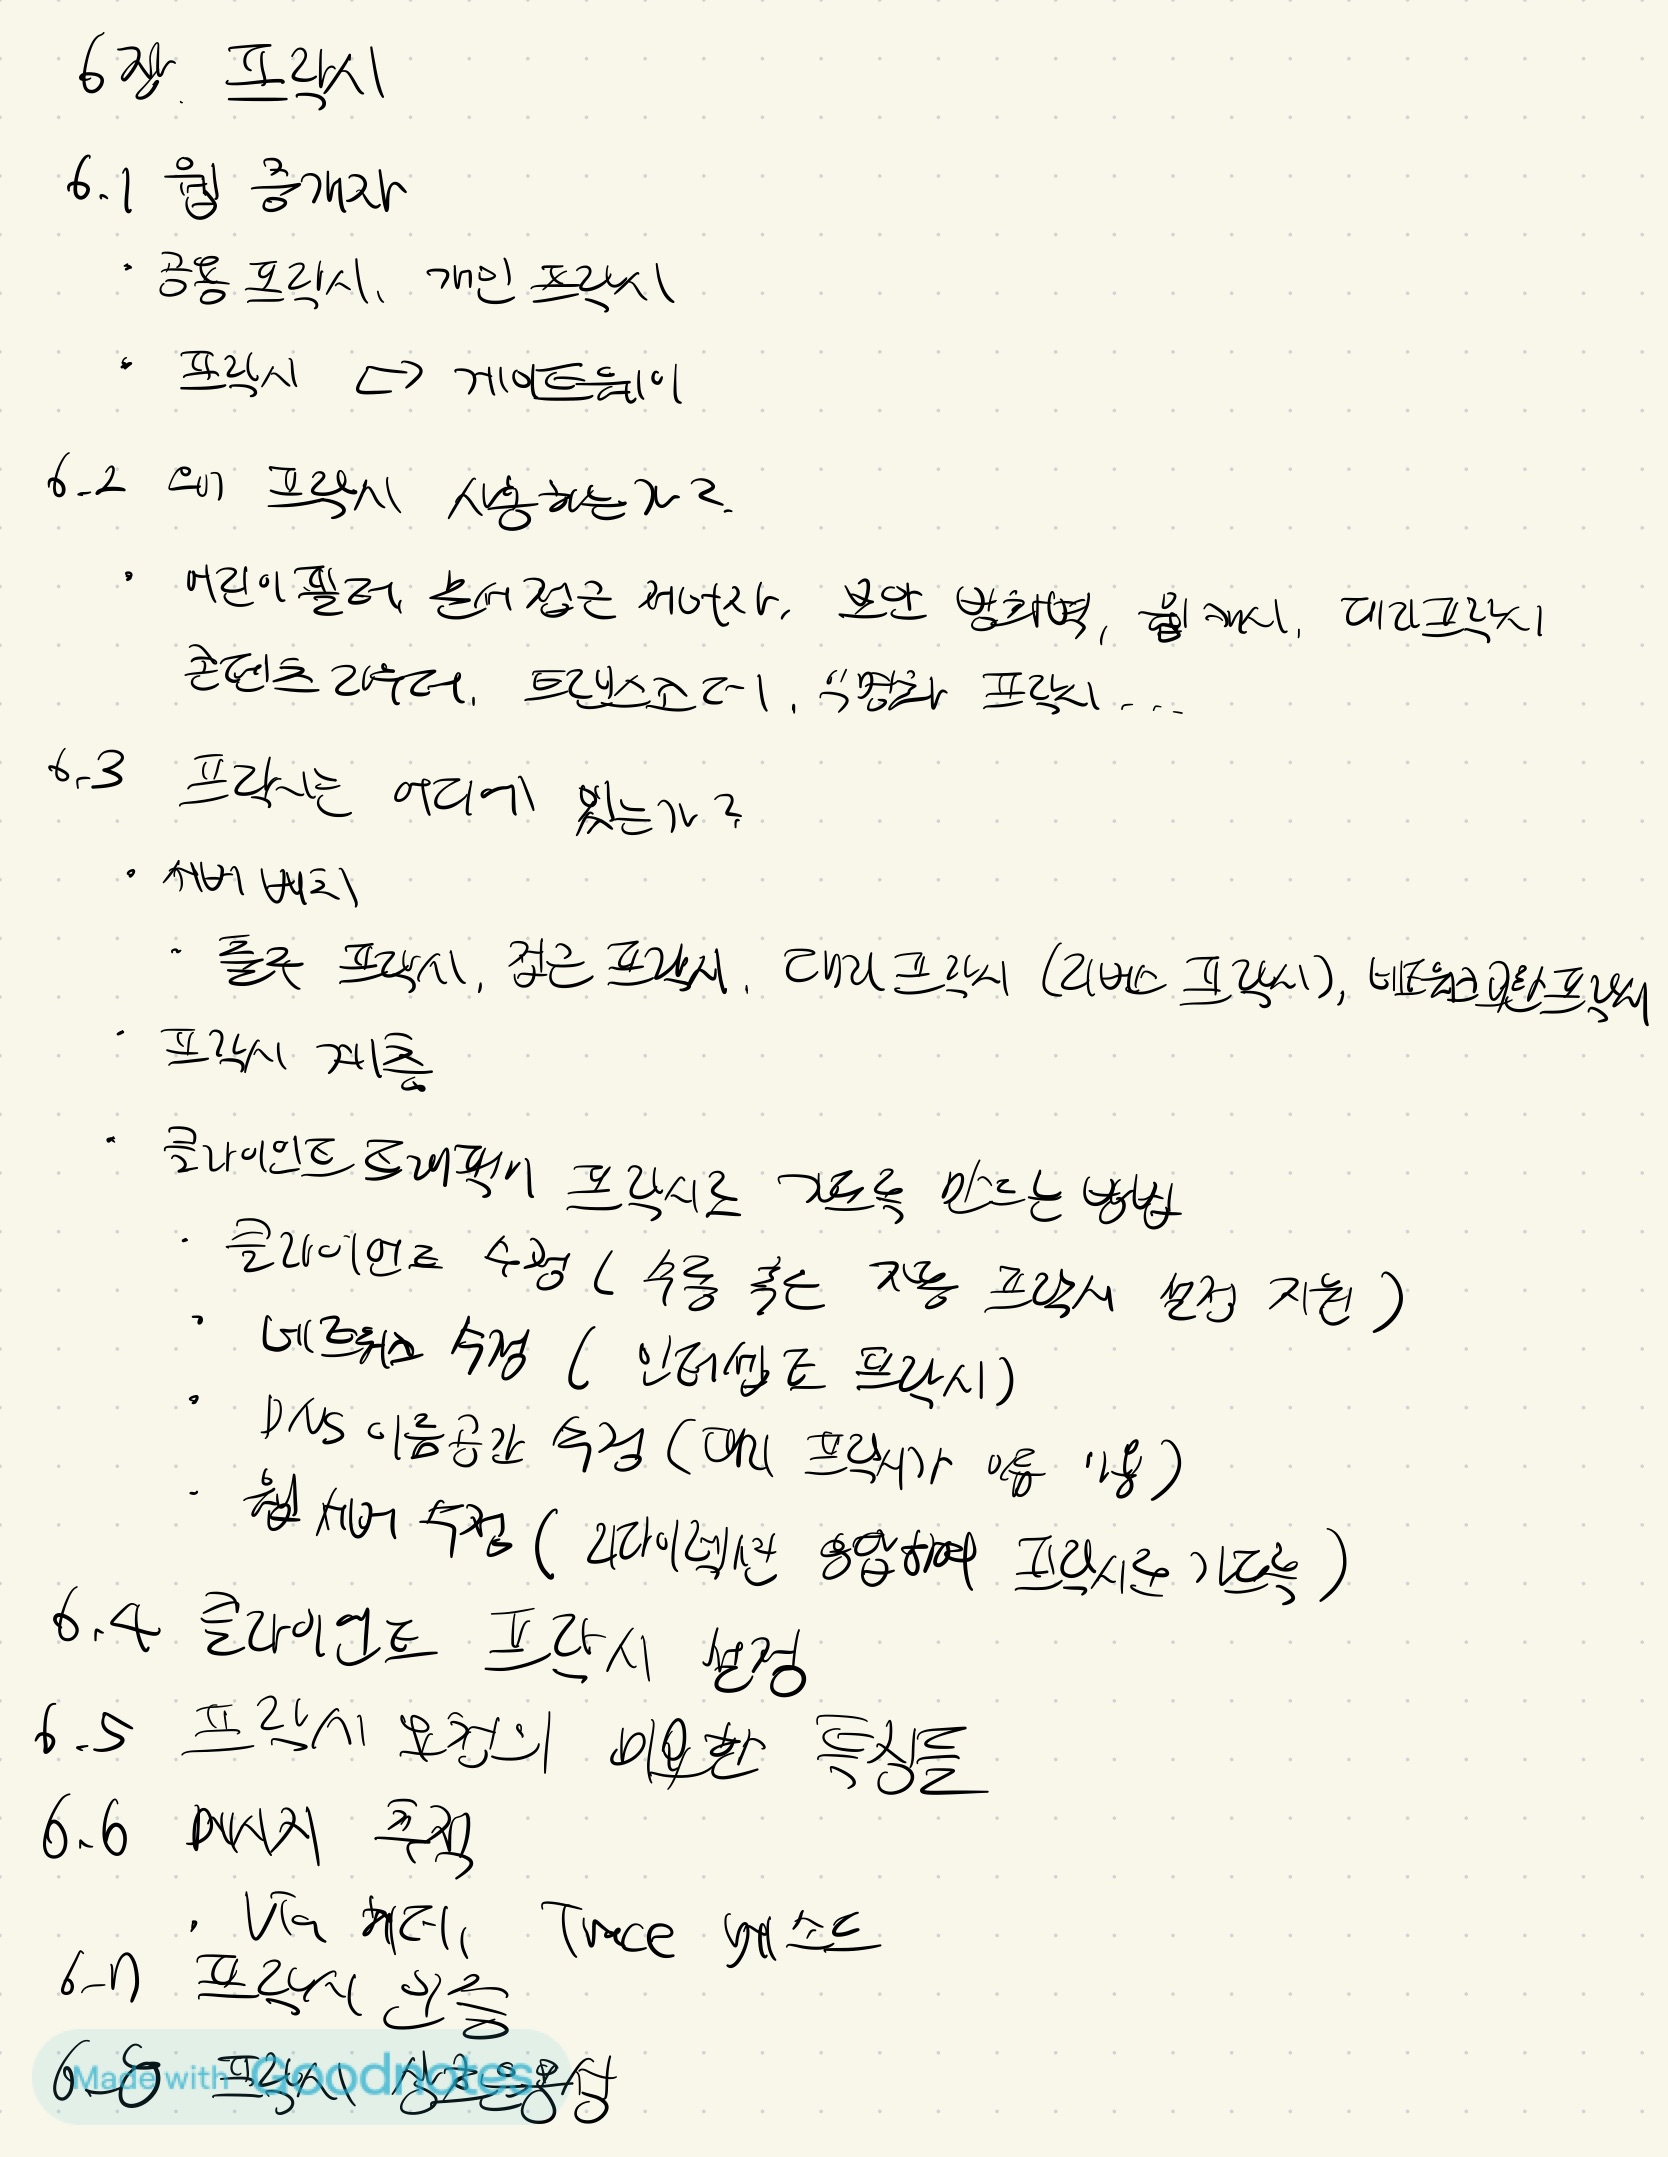 6장. 프락시
6.1 웹 중개자
· 공용 프락시, 개인 프락시
· 프락시 <-> 게이트웨이
6.2 왜 프락시 사용하는가?
· 어린이 필터, 문서 접근 제어자, 보안 방화벽, 웹 캐시, 대리 프락시
콘텐츠 라우터, 트랜스코더, 익명화 프락시....
6.3 프락시는 어디에 있는가?
· 서버 배치
- 출구 프락시, 접근 프락시, 대리 프락시 (리버스 프락시), 네트워크 교환 프락시
· 프락시 계층
· 클라이언트 트래픽이 프락시로 가도록 만드는 방법
· 클라이언트 수정 ( 수동 혹은 자동 프락시 설정 지원 )
· 네트워크 수정 ( 인터셉트 프락시 )
· DNS 이름공간 수정 (대리 프락시가 이름 사용)
· 웹 서버 수정 ( 리다이렉션 응답하여 프락시로 가도록 )
6.4 클라이언트 프락시 설정
6.5 프락시 요청의 미묘한 특징들
6.6 메시지 추적
· Via 헤더, Trace 메소드
6.7 프락시 인증
6.8 프락시 상호운용성
Made with Goodnotes